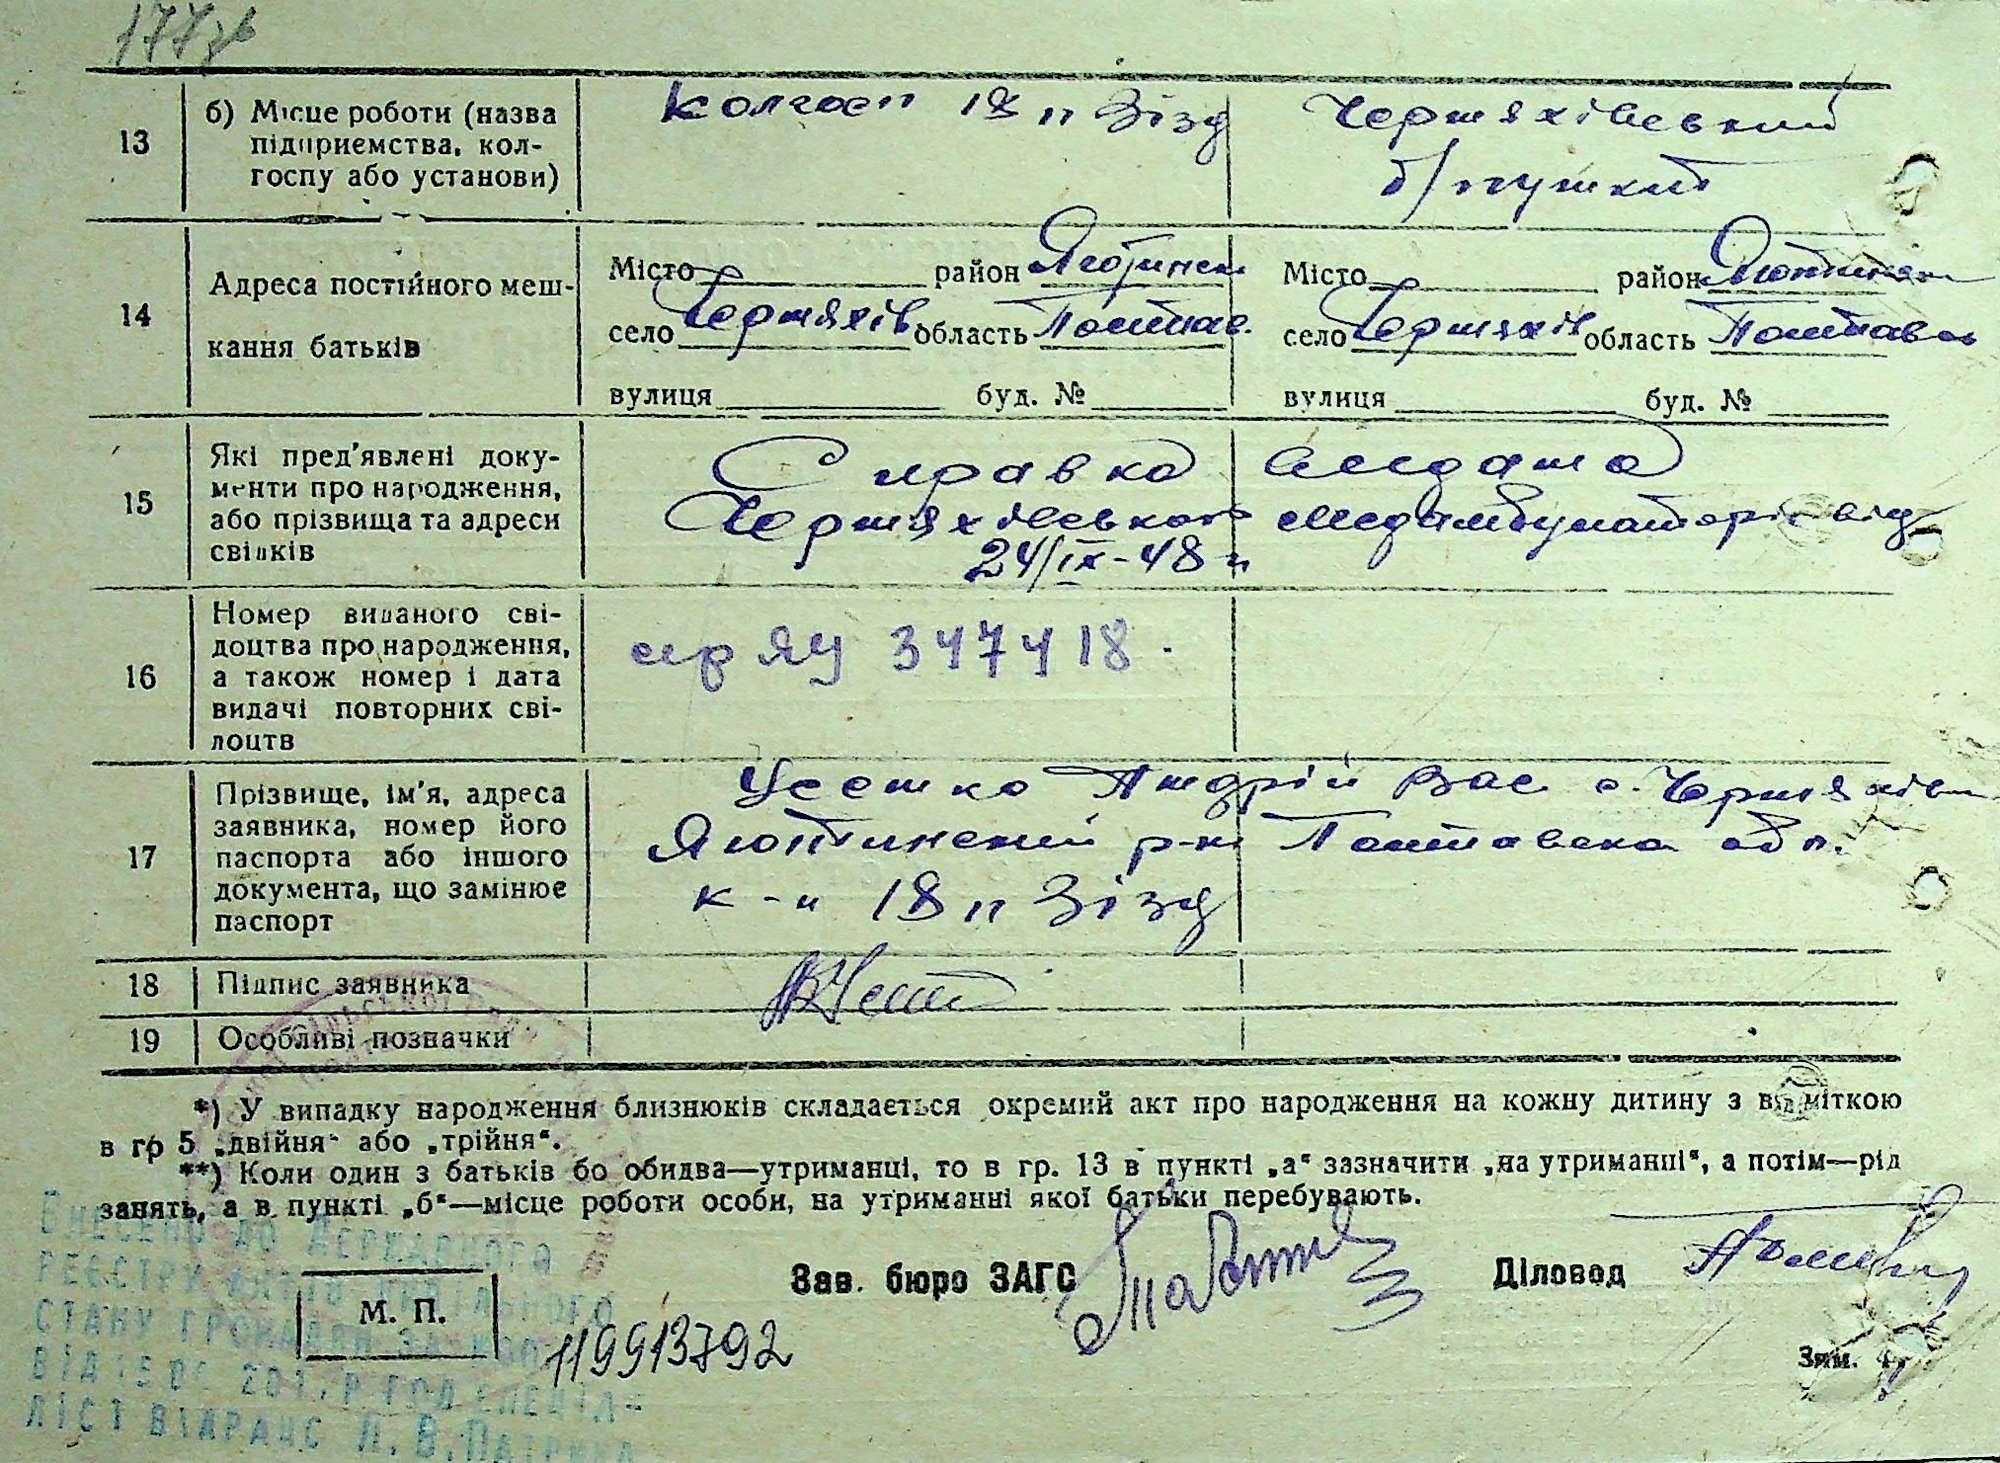 177зв
13 б) Місце роботи (назва підприємства, колгоспу або установи)
Колгосп 18 п Зізд
Черняхівський
б/пункт
14 Адреса постійного мешкання батьків
Місто район Яготинськ
село Черняхів область Полтав.
вулиця буд. №
Місто район Яготинськ
село Черняхів область Полтавсь
вулиця буд. №
15 Які пред'явлені документи про народження, або прізвища та адреси свідків
Справка видана
Черняхівською медамбулаторіє від
24/IX-48 р
16 Номер виданого свідоцтва про народження, а також номер і дата видачі повторних свідоцтв
сер ЯУ 347418.
17 Прізвище, ім'я, адреса заявника, номер його паспорта або іншого документа, що замінює паспорт
Андрій Вас с. Черняхів
Яготинський р-н Полтавська обл.
к-п 18 п Зізд
18 Підпис заявника
19 Особливі позначки
*) У випадку народження близнюків складається окремий акт про народження на кожну дитину з відміткою
в гр 5 „двійня“ або „трійня“.
**) Коли один з батьків бо обидва—утриманці, то в гр. 13 в пункті „а“ зазначити „на утриманні“, а потім—рід
занять, а в пункті „б“—місце роботи особи, на утриманні якої батьки перебувають.
Зав. бюро ЗАГС Діловод
М. П.
119913792
Внесено до Державного
реєстру актів цивільного
стану громадян за №
від
ліст ВДРАЦС Л. В.
Зам.